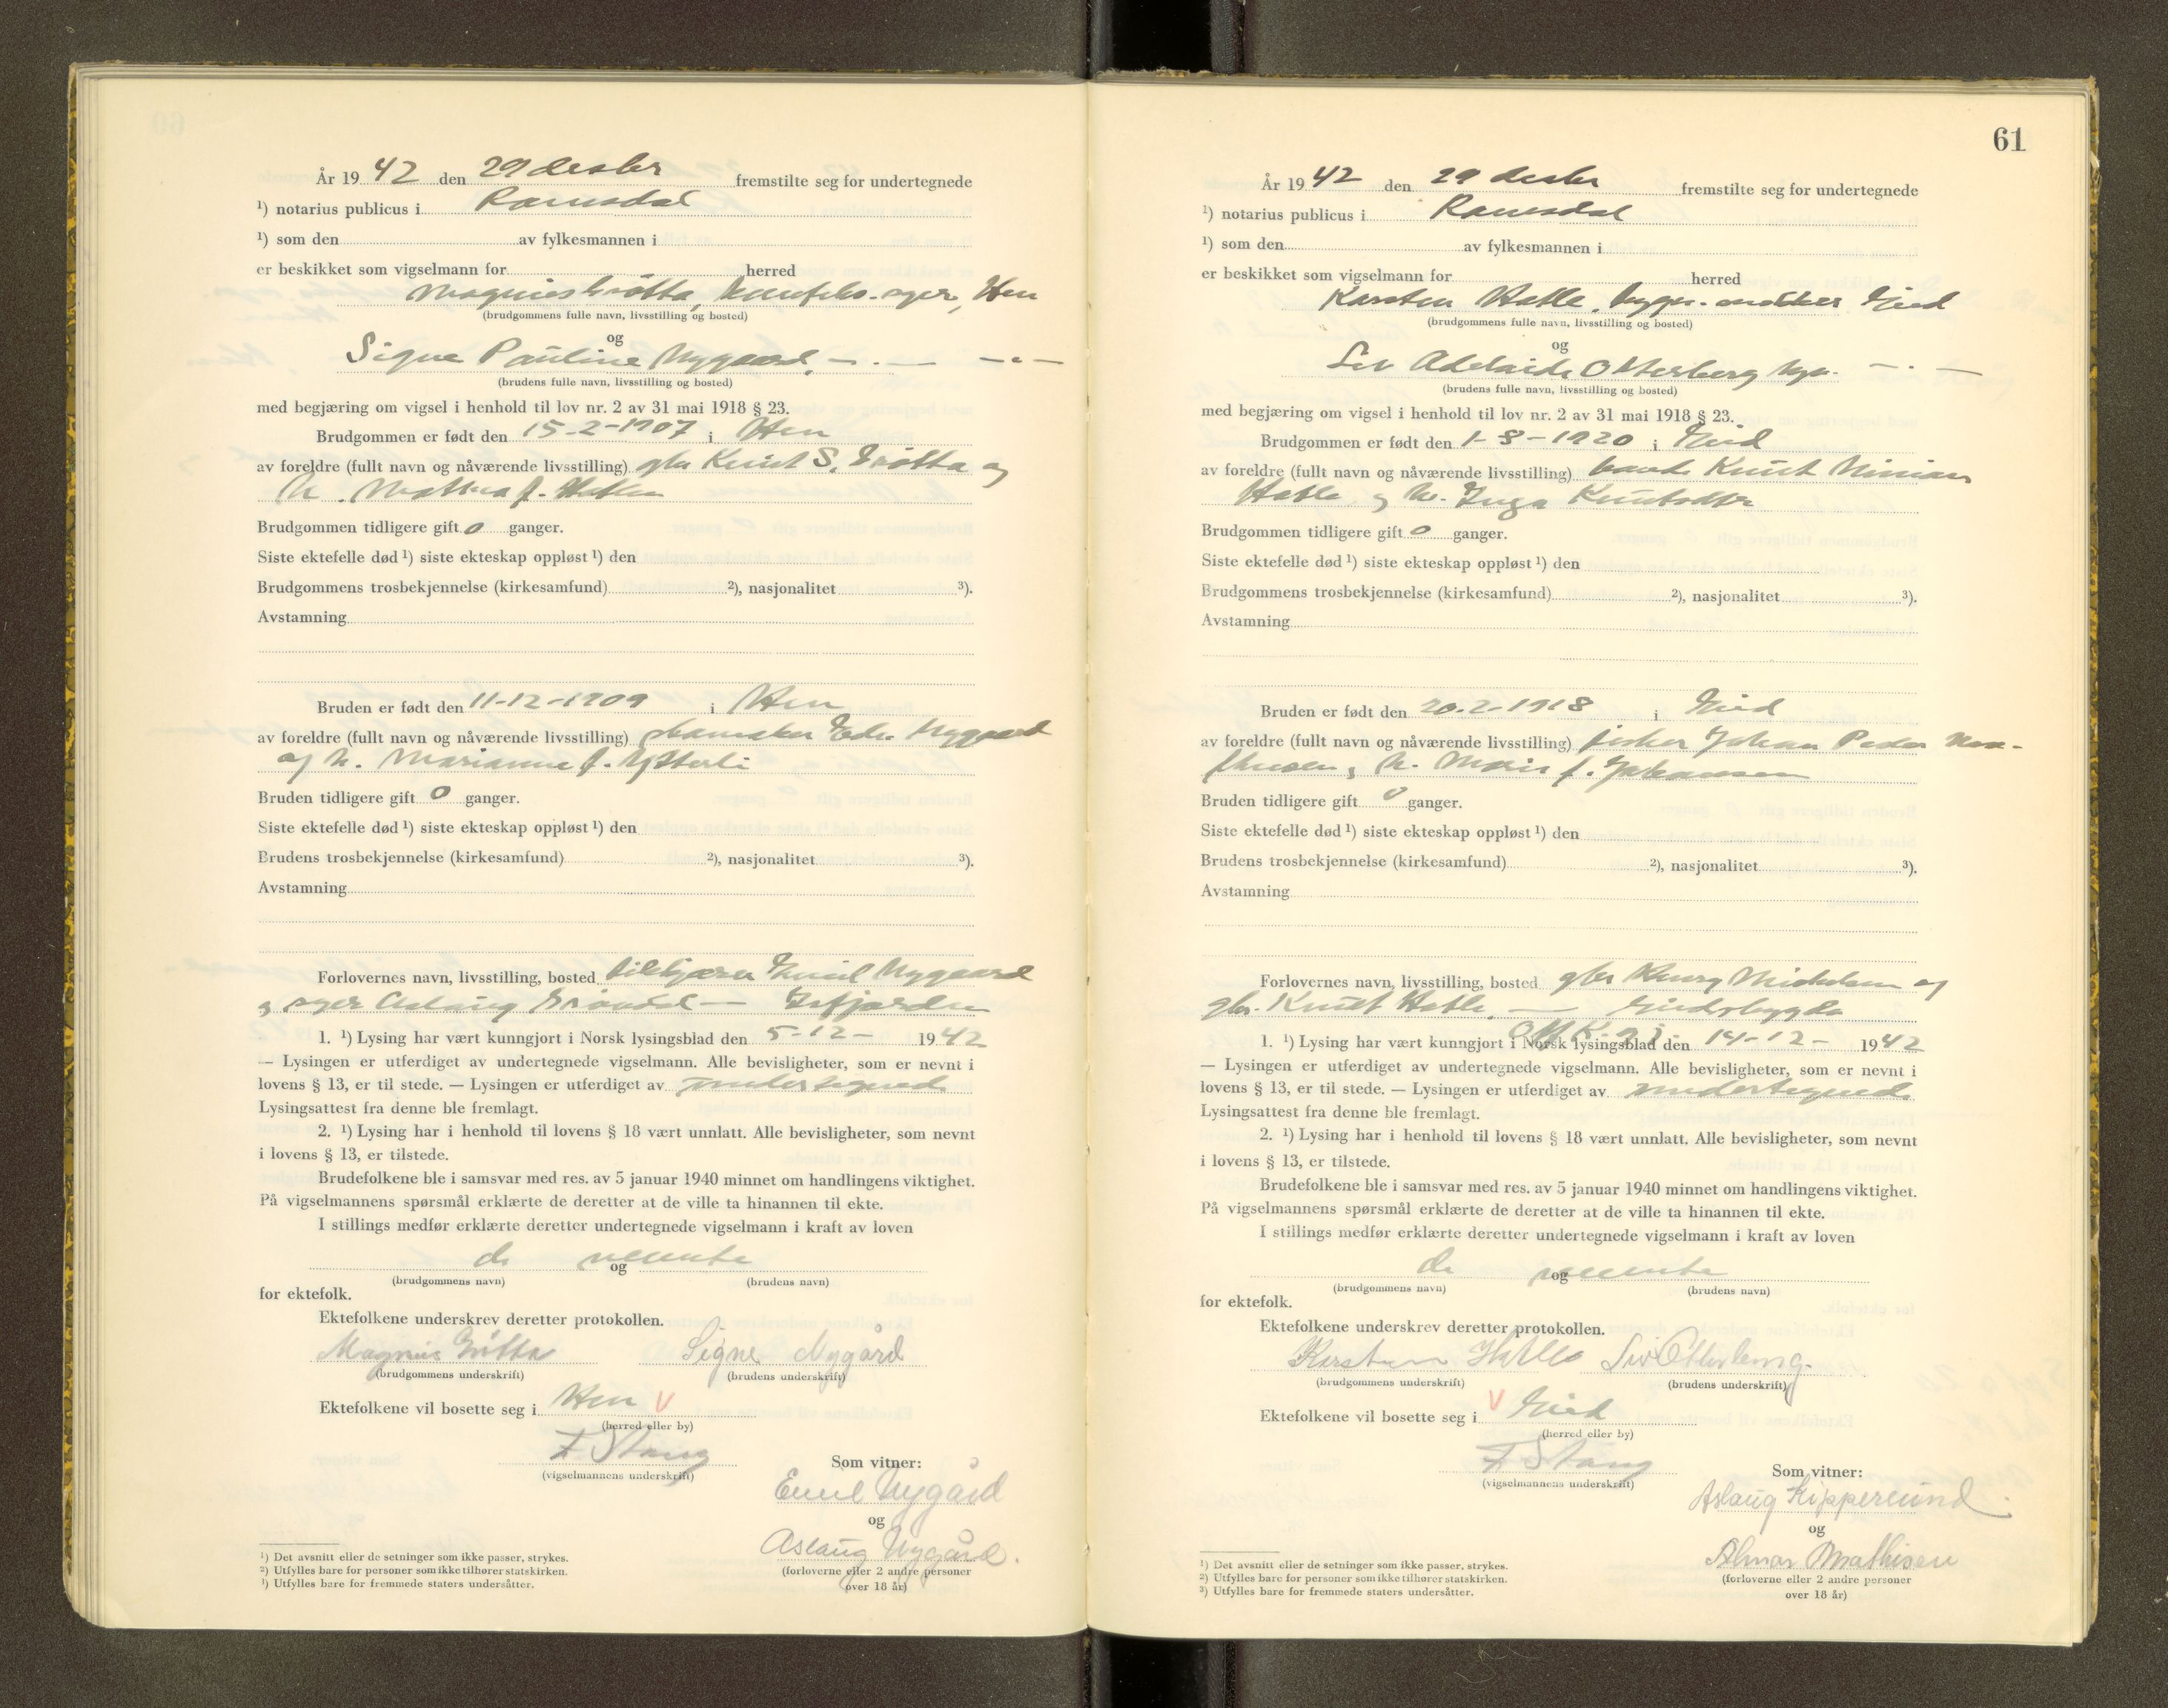 År 1942 den 29 desbr fremstilte seg for undertegnede
¹) notarius publicus i Romsdal
¹) som den av fylkesmannen i
er beskikket som vigselmann for herred
Magnus Grøtta, Hen
(brudgommens fulle navn, livsstilling og bosted)
og
Signe Pauline Nygaard, — . — — . —
(brudens fulle navn, livsstilling og bosted)
med begjæring om vigsel i henhold til lov nr. 2 av 31 mai 1918 § 23.
Brudgommen er født den 15-2-1907 i Hen
av foreldre (fullt navn og nåværende livsstilling) gbr Knut S. Grøtta og
h. f. Hatlen
Brudgommen tidligere gift 0 ganger.
Siste ektefelle død ¹) siste ekteskap oppløst ¹) den
Brudgommens trosbekjennelse (kirkesamfund) ²), nasjonalitet ³).
Avstamning
Bruden er født den 11-12-1909 i Hen
av foreldre (fullt navn og nåværende livsstilling) Nygaard
og h. Marianne f. Ytterli
Bruden tidligere gift 0 ganger.
Siste ektefelle død ¹) siste ekteskap oppløst ¹) den
Brudens trosbekjennelse (kirkesamfund) ²), nasjonalitet ³).
Avstamning
Forlovernes navn, livsstilling, bosted Emil Nygaard
og Aslaug — Isfjorden
1. ¹) Lysing har vært kunngjort i Norsk lysingsblad den 5-12- 1942
— Lysingen er utferdiget av undertegnede vigselmann. Alle bevisligheter, som er nevnt i
lovens § 13, er til stede. — Lysingen er utferdiget av undertegnede
Lysingsattest fra denne ble fremlagt.
2. ¹) Lysing har i henhold til lovens § 18 vært unnlatt. Alle bevisligheter, som nevnt
i lovens § 13, er tilstede.
Brudefolkene ble i samsvar med res. av 5 januar 1940 minnet om handlingens viktighet.
På vigselmannens spørsmål erklærte de deretter at de ville ta hinannen til ekte.
I stillings medfør erklærte deretter undertegnede vigselmann i kraft av loven
de og nevnte
(brudgommens navn) (brudens navn)
for ektefolk.
Ektefolkene underskrev deretter protokollen.
Magnus Grøtta Signe Nygård
(brudgommens underskrift) (brudens underskrift)
Ektefolkene vil bosette seg i Hen V
(herred eller by)
F Stang
(vigselmannens underskrift)
Som vitner:
Emil Nygård
og
Aslaug Nygård.
(forloverne eller 2 andre personer
over 18 år)
¹) Det avsnitt eller de setninger som ikke passer, strykes.
²) Utfylles bare for personer som ikke tilhører statskirken.
³) Utfylles bare for fremmede staters undersåtter.
61
År 1942 den 29 desbr fremstilte seg for undertegnede
¹) notarius publicus i Romsdal
¹) som den av fylkesmannen i
er beskikket som vigselmann for herred
Karsten Hatle, Eid
(brudgommens fulle navn, livsstilling og bosted)
og
Liv Adelaide Otterberg — . —
(brudens fulle navn, livsstilling og bosted)
med begjæring om vigsel i henhold til lov nr. 2 av 31 mai 1918 § 23.
Brudgommen er født den 1-8-1920 i Eid
av foreldre (fullt navn og nåværende livsstilling) Knut
Hatle og h. Inga Knutsdtr
Brudgommen tidligere gift 0 ganger.
Siste ektefelle død ¹) siste ekteskap oppløst ¹) den
Brudgommens trosbekjennelse (kirkesamfund) ²), nasjonalitet ³).
Avstamning
Bruden er født den 20-2-1918 i Eid
av foreldre (fullt navn og nåværende livsstilling) fisker Johan Peder
og h. f. Johansen
Bruden tidligere gift 0 ganger.
Siste ektefelle død ¹) siste ekteskap oppløst ¹) den
Brudens trosbekjennelse (kirkesamfund) ²), nasjonalitet ³).
Avstamning
Forlovernes navn, livsstilling, bosted gbr og
gbr. Knut Hatle, — Eidsbygda
1. ¹) Lysing har vært kunngjort i Norsk lysingsblad den 14-12- 1942
— Lysingen er utferdiget av undertegnede vigselmann. Alle bevisligheter, som er nevnt i
lovens § 13, er til stede. — Lysingen er utferdiget av undertegnede
Lysingsattest fra denne ble fremlagt.
2. ¹) Lysing har i henhold til lovens § 18 vært unnlatt. Alle bevisligheter, som nevnt
i lovens § 13, er tilstede.
Brudefolkene ble i samsvar med res. av 5 januar 1940 minnet om handlingens viktighet.
På vigselmannens spørsmål erklærte de deretter at de ville ta hinannen til ekte.
I stillings medfør erklærte deretter undertegnede vigselmann i kraft av loven
de og nevnte
(brudgommens navn) (brudens navn)
for ektefolk.
Ektefolkene underskrev deretter protokollen.
Karsten Hatle Liv Otterberg.
(brudgommens underskrift) (brudens underskrift)
Ektefolkene vil bosette seg i V Eid
(herred eller by)
F Stang
(vigselmannens underskrift)
Som vitner:
Aslaug Kippersund.
og
Almar Mathisen
(forloverne eller 2 andre personer
over 18 år)
¹) Det avsnitt eller de setninger som ikke passer, strykes.
²) Utfylles bare for personer som ikke tilhører statskirken.
³) Utfylles bare for fremmede staters undersåtter.